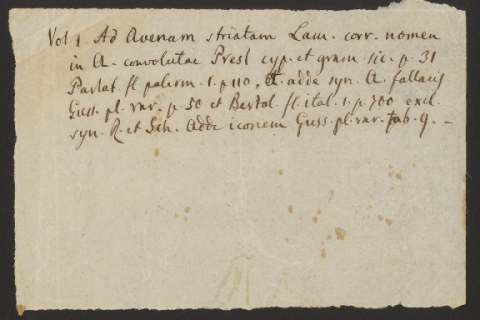 Vol 1. Ad Avenam striatam Lam. corr. nomen
in A. convolutae Presl cyp. et gram. sic. p. 31
Parlat. fl. palerm. 1. p. 110, et adde syn. A. fallacis
Guss. pl. rar. p. 50 et Bertol. fl. ital. 1. p. 700 excl.
syn. R. et Sch. Adde iconem Guss. pl. rar. tab. 9. –